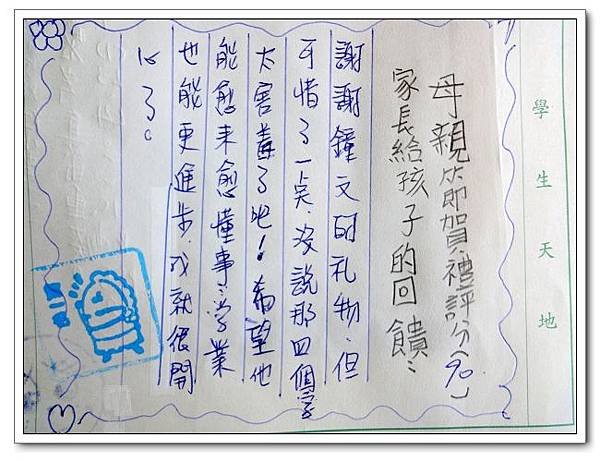 學生天地
母親節賀禮評分(90)
家長給孩子的回饋:
謝謝鐘文的礼物,但
可惜了一点,沒說那四個字
太害羞了吧!希望他
能愈来愈懂事,学業
也能更進步,我就很開
心了。